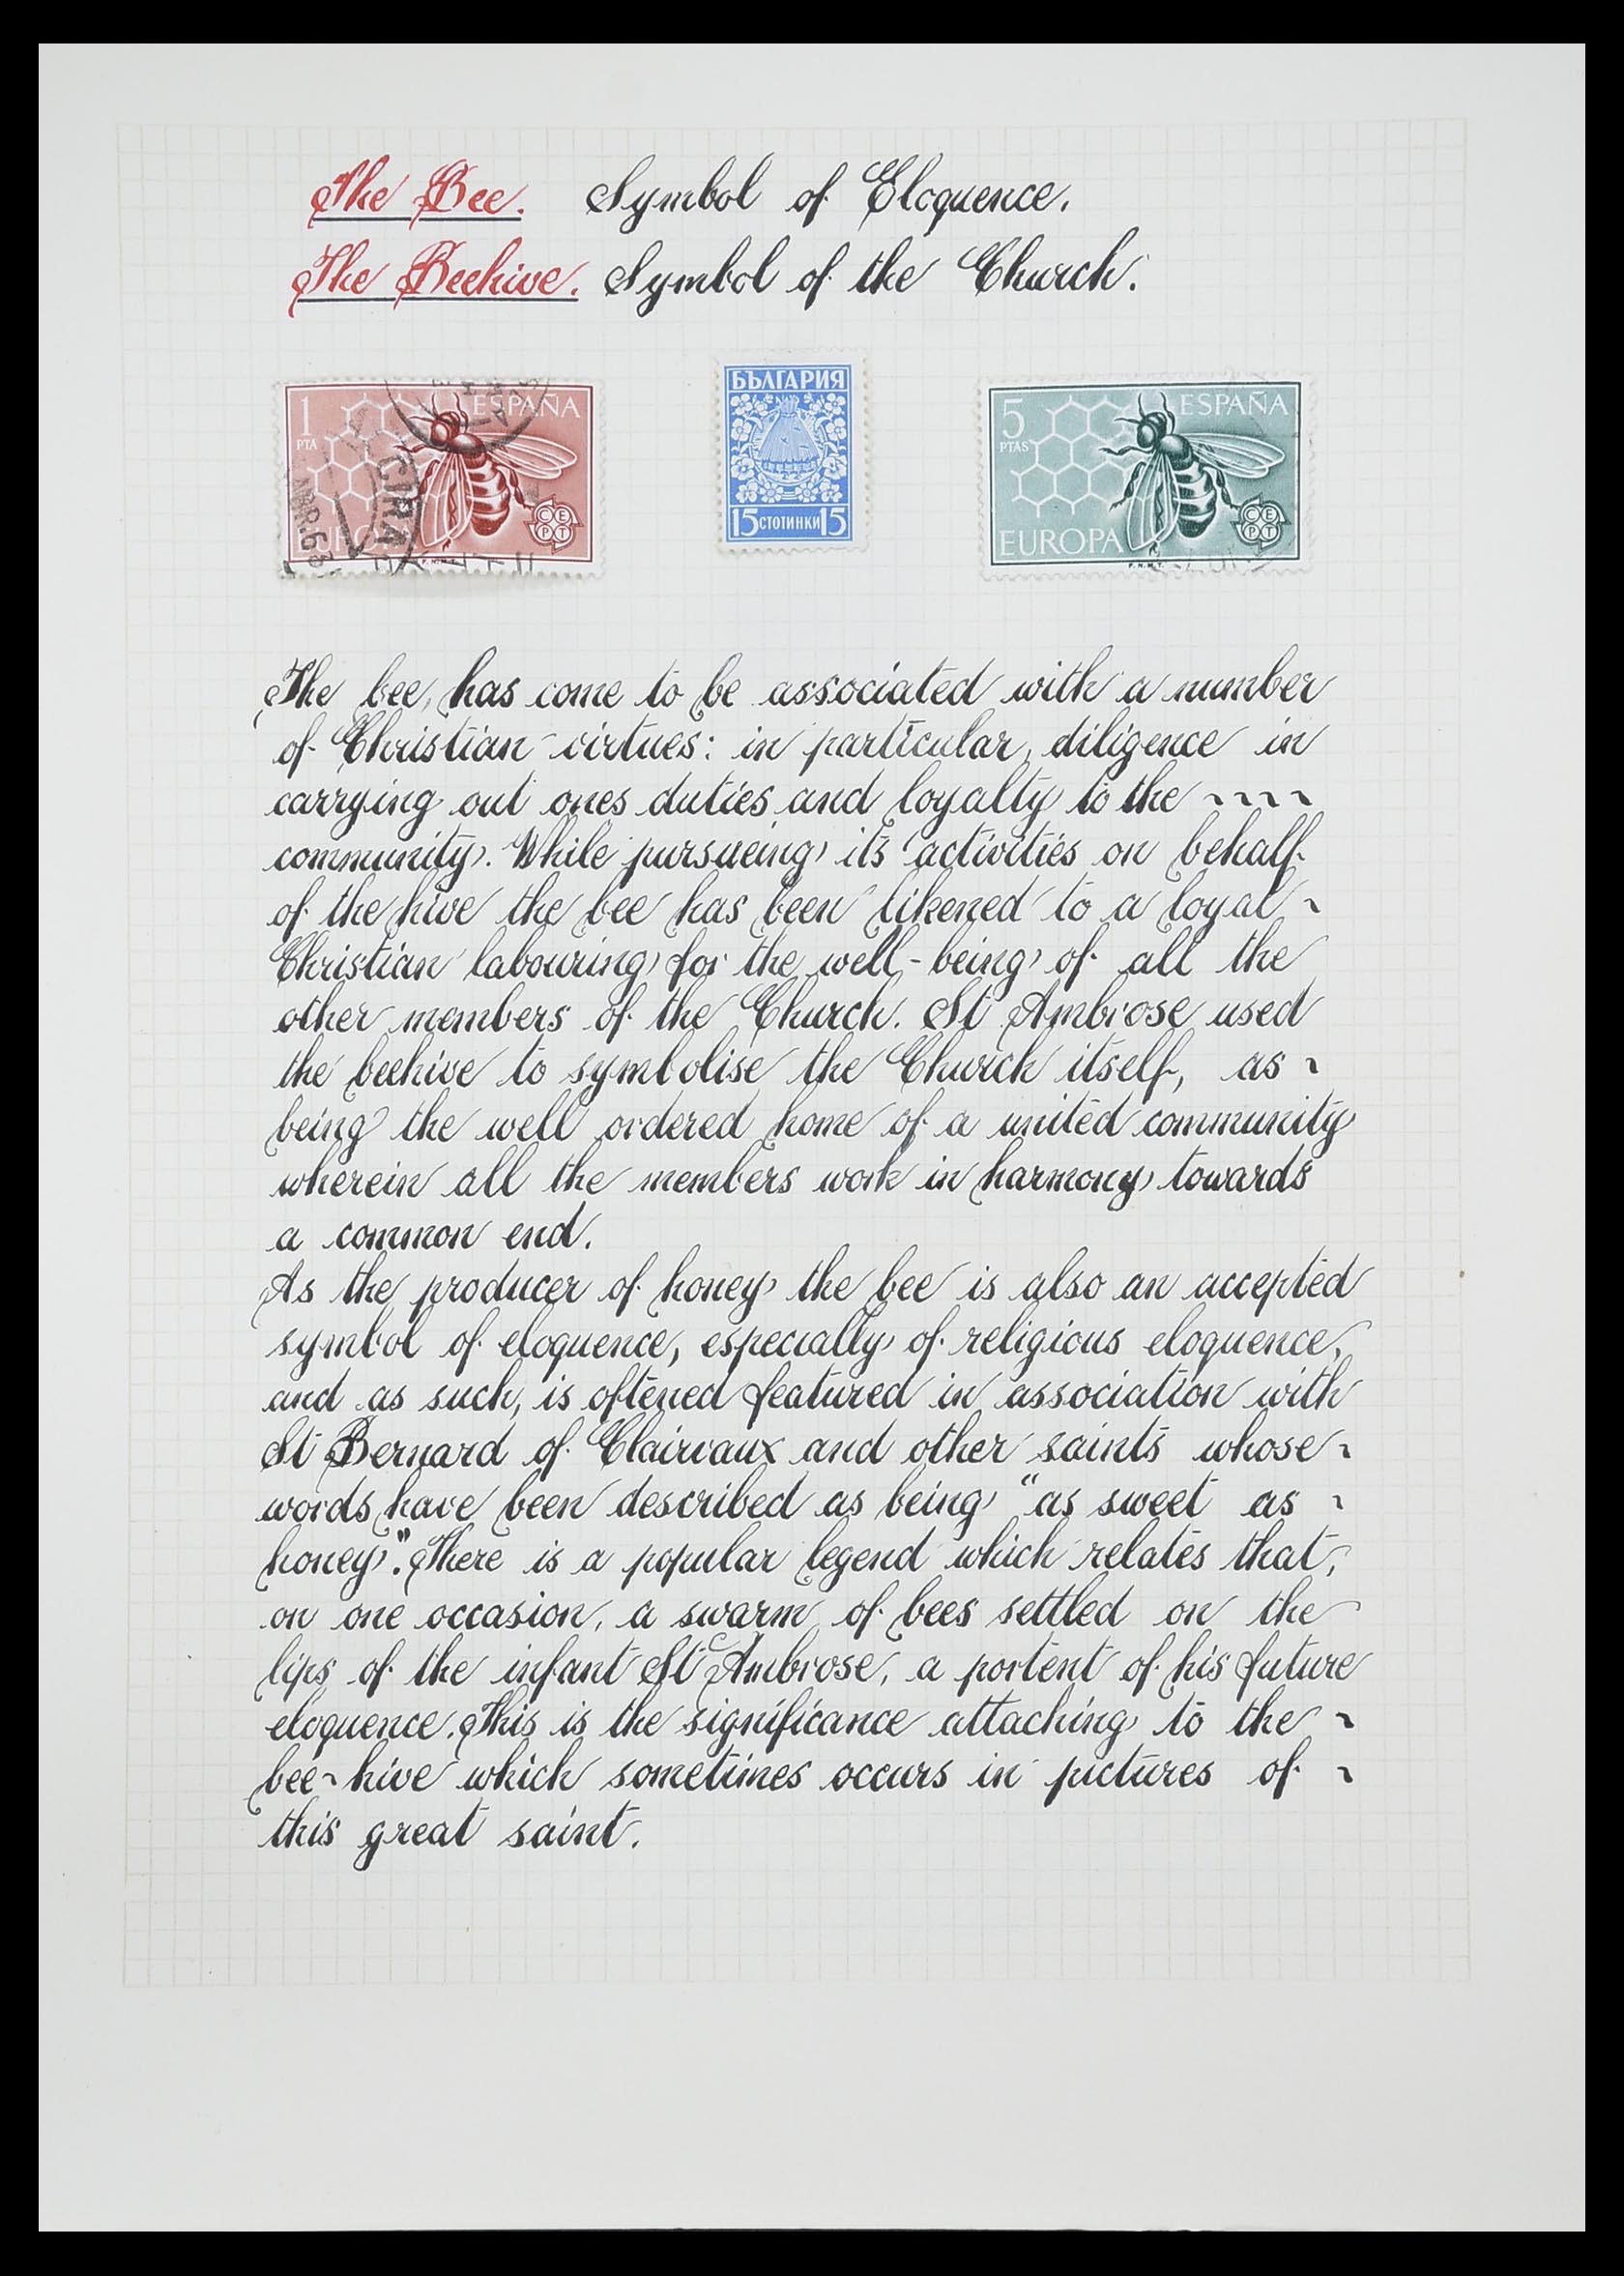 The Bee. Symbol of Eloquence.
The Beehive. Symbol of the Church.
1 PTA ESPAÑA
CIRA
ABR. 63
CEPT
F.N.M.T.
БЪЛГАРИЯ
15 СТОТИНКИ 15
5 PTAS ESPAÑA
EUROPA
CEPT
F.N.M.T.
The bee, has come to be associated with a number
of Christian virtues: in particular, diligence in
carrying out ones duties and loyalty to the ~~~~
community. While pursueing its activities on behalf
of the hive the bee has been likened to a loyal ~
Christian labouring for the well-being of all the
other members of the Church. St Ambrose used
the beehive to symbolise the Church itself, as ~
being the well ordered home of a united community
wherein all the members work in harmony towards
a common end.
As the producer of honey the bee is also an accepted
symbol of eloquence, especially of religious eloquence,
and as such, is oftened featured in association with
St Bernard of Clairvaux and other saints whose ~
words have been described as being "as sweet as ~
honey". There is a popular legend which relates that,
on one occasion, a swarm of bees settled on the
lips of the infant St Ambrose, a portent of his future
eloquence. This is the significance attaching to the ~
bee~hive which sometimes occurs in pictures of ~
this great saint.